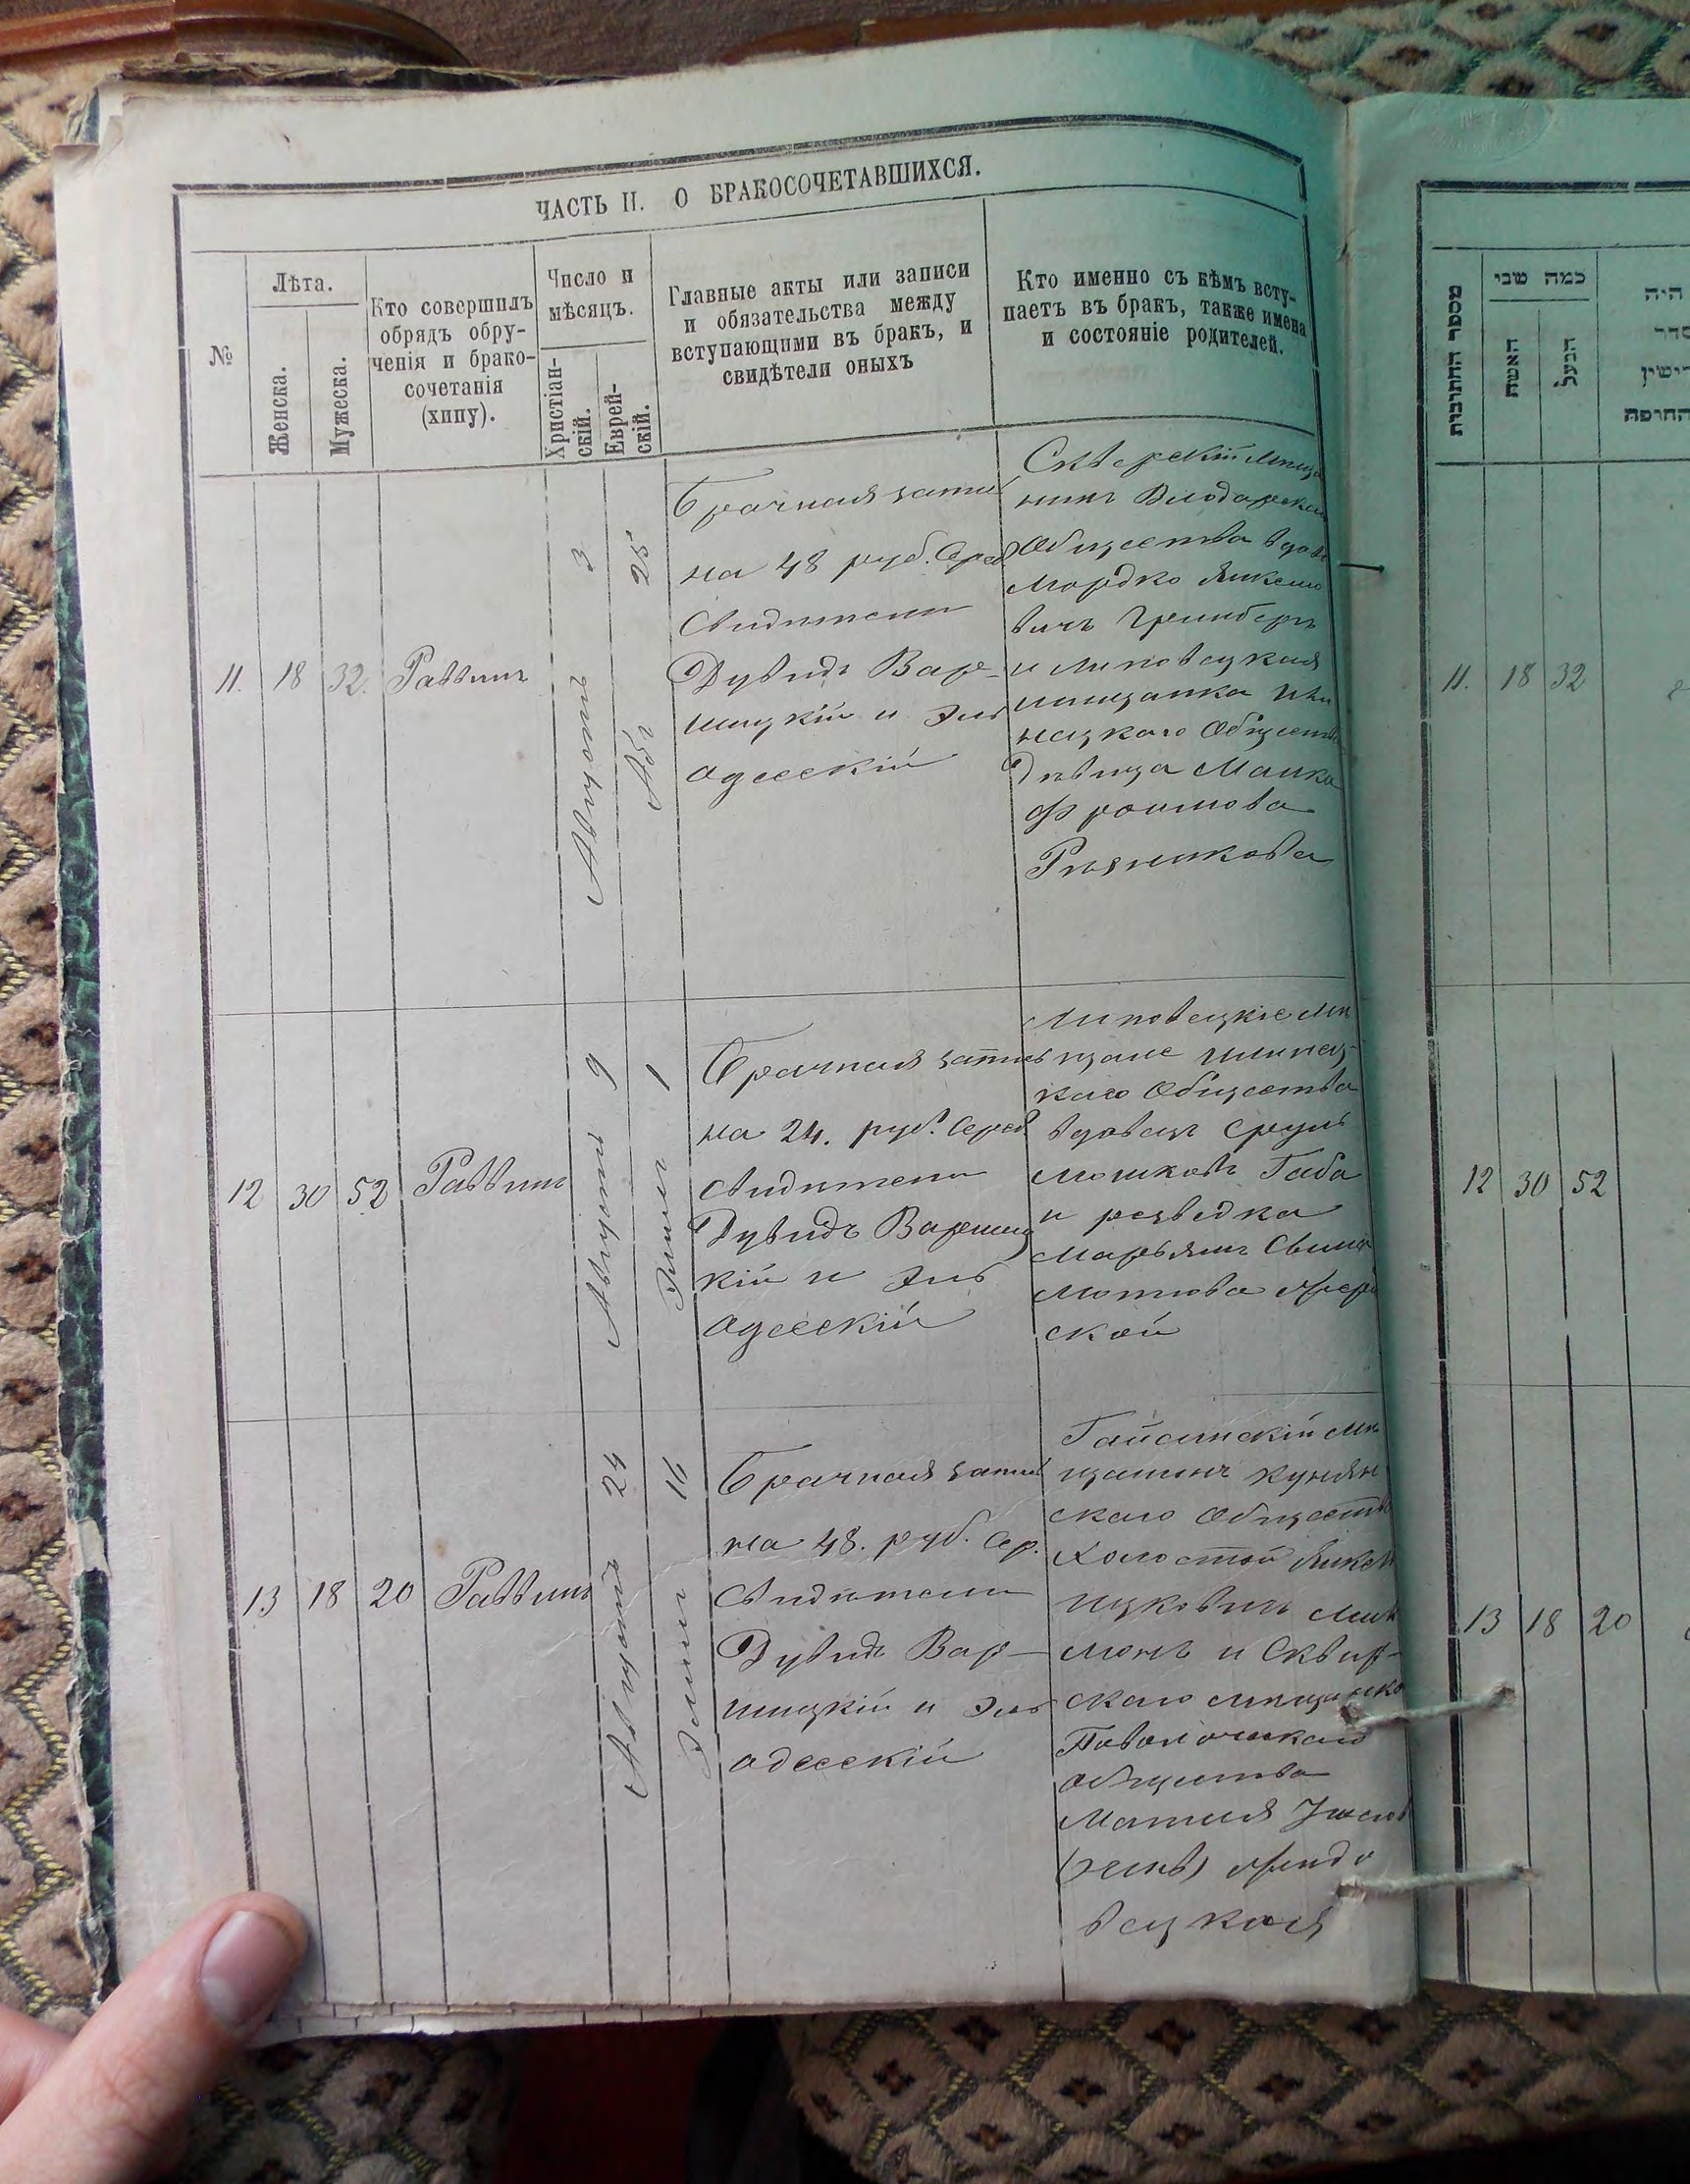 ЧАСТЬ II. О БРАКОСОЧЕТАВШИХСЯ.
№
Лѣта.
Женска.
Мужеска.
Кто совершилъ
обрядъ обру-
ченія и брако-
сочетанія
(хипу).
Число и
мѣсяцъ.
Христіан-
скій.
Еврей-
скій.
Главные акты или записи
и обязательства между
вступающими въ бракъ, и
свидѣтели оныхъ
Кто именно съ кѣмъ всту-
паетъ въ бракъ, также имена
и состояніе родителей.
11. 18 32. Раввинъ
Августъ 3
Абъ 25
Брачная запись
на 48 руб. Сереб
Свидѣтели
Дувидъ Вар-
шицкій и Эль
одесскій
Сквирскій мѣща
нинъ Володарскаго
Общества вдов
Мордко Янкело
вичъ Гринбергъ
и Липовецкая
мѣщанка
нецкаго Общества
дѣвица Малка
Фроимова
12 30 52 Раввинъ
Августъ 9
Элилъ 1
Брачная запись
на 24. руб. Сереб
свидѣтели
Дувидъ Варшиц
кій и Эль
одесскій
Липовецкіе мѣ
щане Илинец-
каго Общества
вдовецъ Сруль
Мошковъ Габа
и розведка
Марьямъ
ской
13 18 20 Раввинъ
Августъ 24
Элилъ 16
Брачная запись
на 48. руб. Сер.
Свидѣтели
Дувидъ Вар-
шицкій и Эль
одесскій
Гайсинскій мѣ
щанинъ Кунян
скаго Общества
Холостой Янкел
Ицковичъ
и Сквир-
скаго мѣщанка
Паволочскаго
общества
вецкая
מספר החתונות
כמה שני
האשה
הבעל
היה
11. 18 32
12 30 52
13 18 20